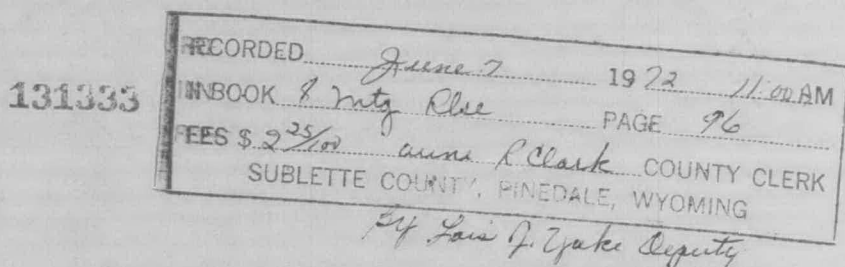 131333
RECORDED June 7 1972 11:00 AM
IN BOOK 8 Mtg Rlse PAGE 96
FEES $ 2 25/100 R Clark COUNTY CLERK
SUBLETTE COUNTY, PINEDALE, WYOMING
By Lois J. Yake Deputy